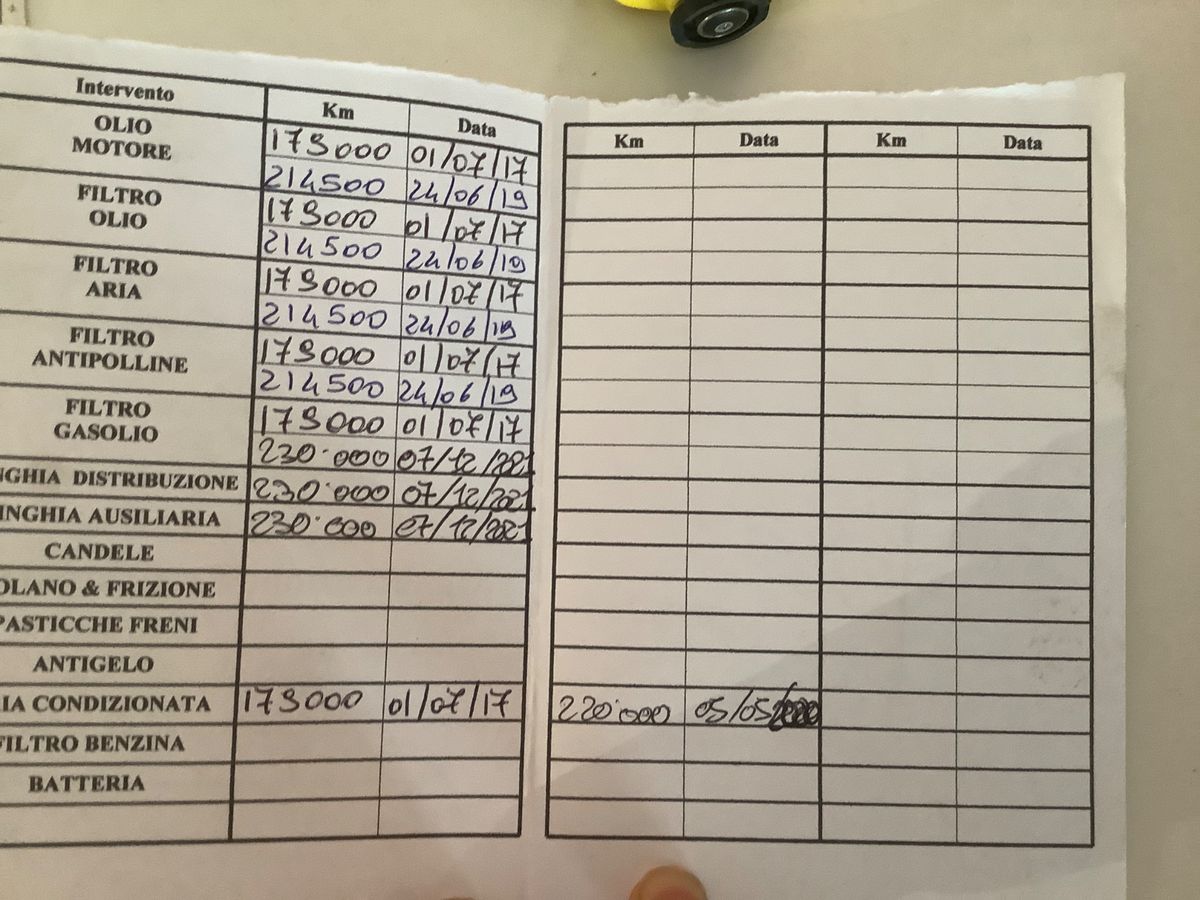 Intervento Km Data Km Data Km Data
OLIO 179000 01/07/17
MOTORE 214500 24/06/19
FILTRO 179000 01/07/17
OLIO 214500 24/06/19
FILTRO 179000 01/07/17
ARIA 214500 24/06/19
FILTRO 179000 01/07/17
ANTIPOLLINE 214500 24/06/19
FILTRO 179000 01/07/17
GASOLIO 230.000 07/12/2021
NGHIA DISTRIBUZIONE 230.000 07/12/2021
INGHIA AUSILIARIA 230.000 07/12/2021
CANDELE
OLANO & FRIZIONE
PASTICCHE FRENI
ANTIGELO
IA CONDIZIONATA 179000 01/07/17 220.000 05/05/
FILTRO BENZINA
BATTERIA